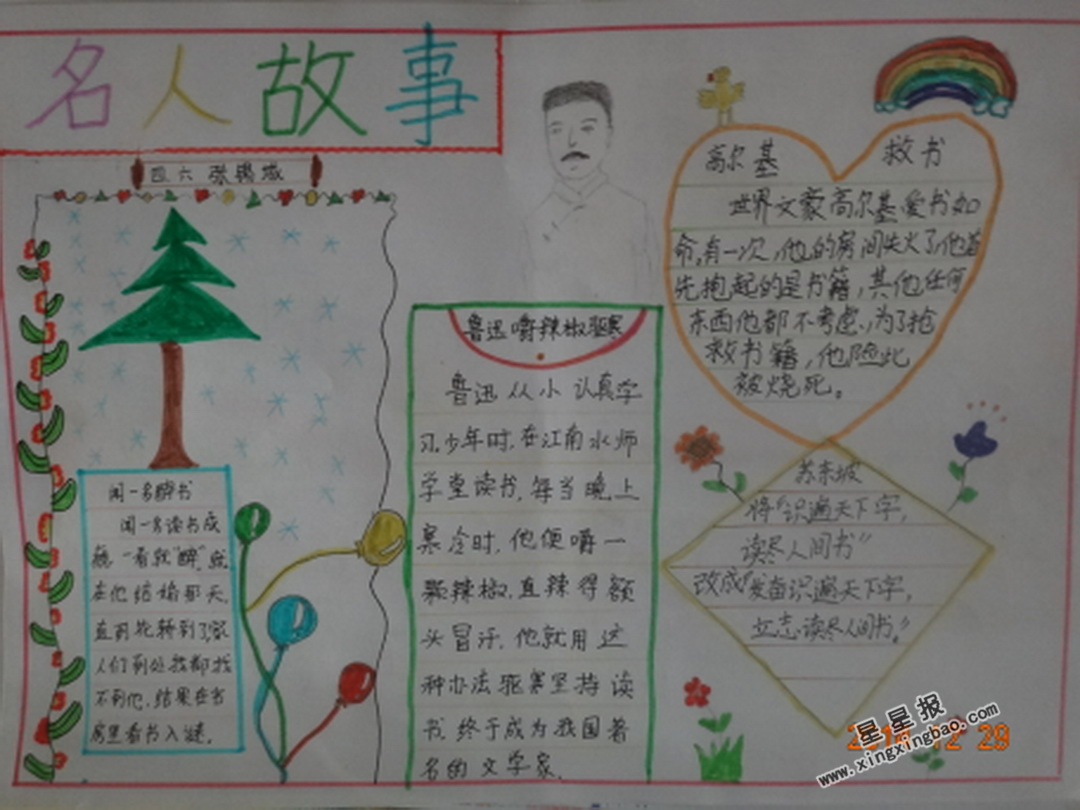 名人故事
四六 张锡城
闻一多醉书
闻一多读书成
瘾,一看就"醉",就
在他结婚那天,
直到花轿到了,家
人们到处找都找
不到他,结果在书
房里看书入谜。
鲁迅嚼辣椒驱寒
鲁迅从小认真学
习。少年时,在江南水师
学堂读书,每当晚上
寒冷时,他便嚼一
颗辣椒,直辣得额
头冒汗。他就用这
种办法驱寒坚持读
书,终于成为我国著
名的文学家。
高尔基 救书
世界文豪高尔基爱书如
命,有一次,他的房间失火了,他首
先抱起的是书籍,其他任何
东西他都不考虑、为了抢
救书籍,他险些
被烧死。
苏东坡
将"识遍天下字,
读尽人间书"
改成"发奋识遍天下字,
立志读尽人间书。"
12 29
星星报
www.xingxingbao.com